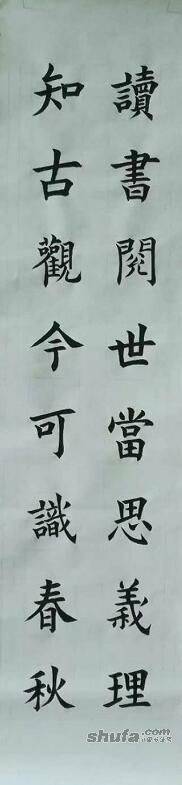 讀書閱世當思義理
知古觀今可識春秋
shufa.com